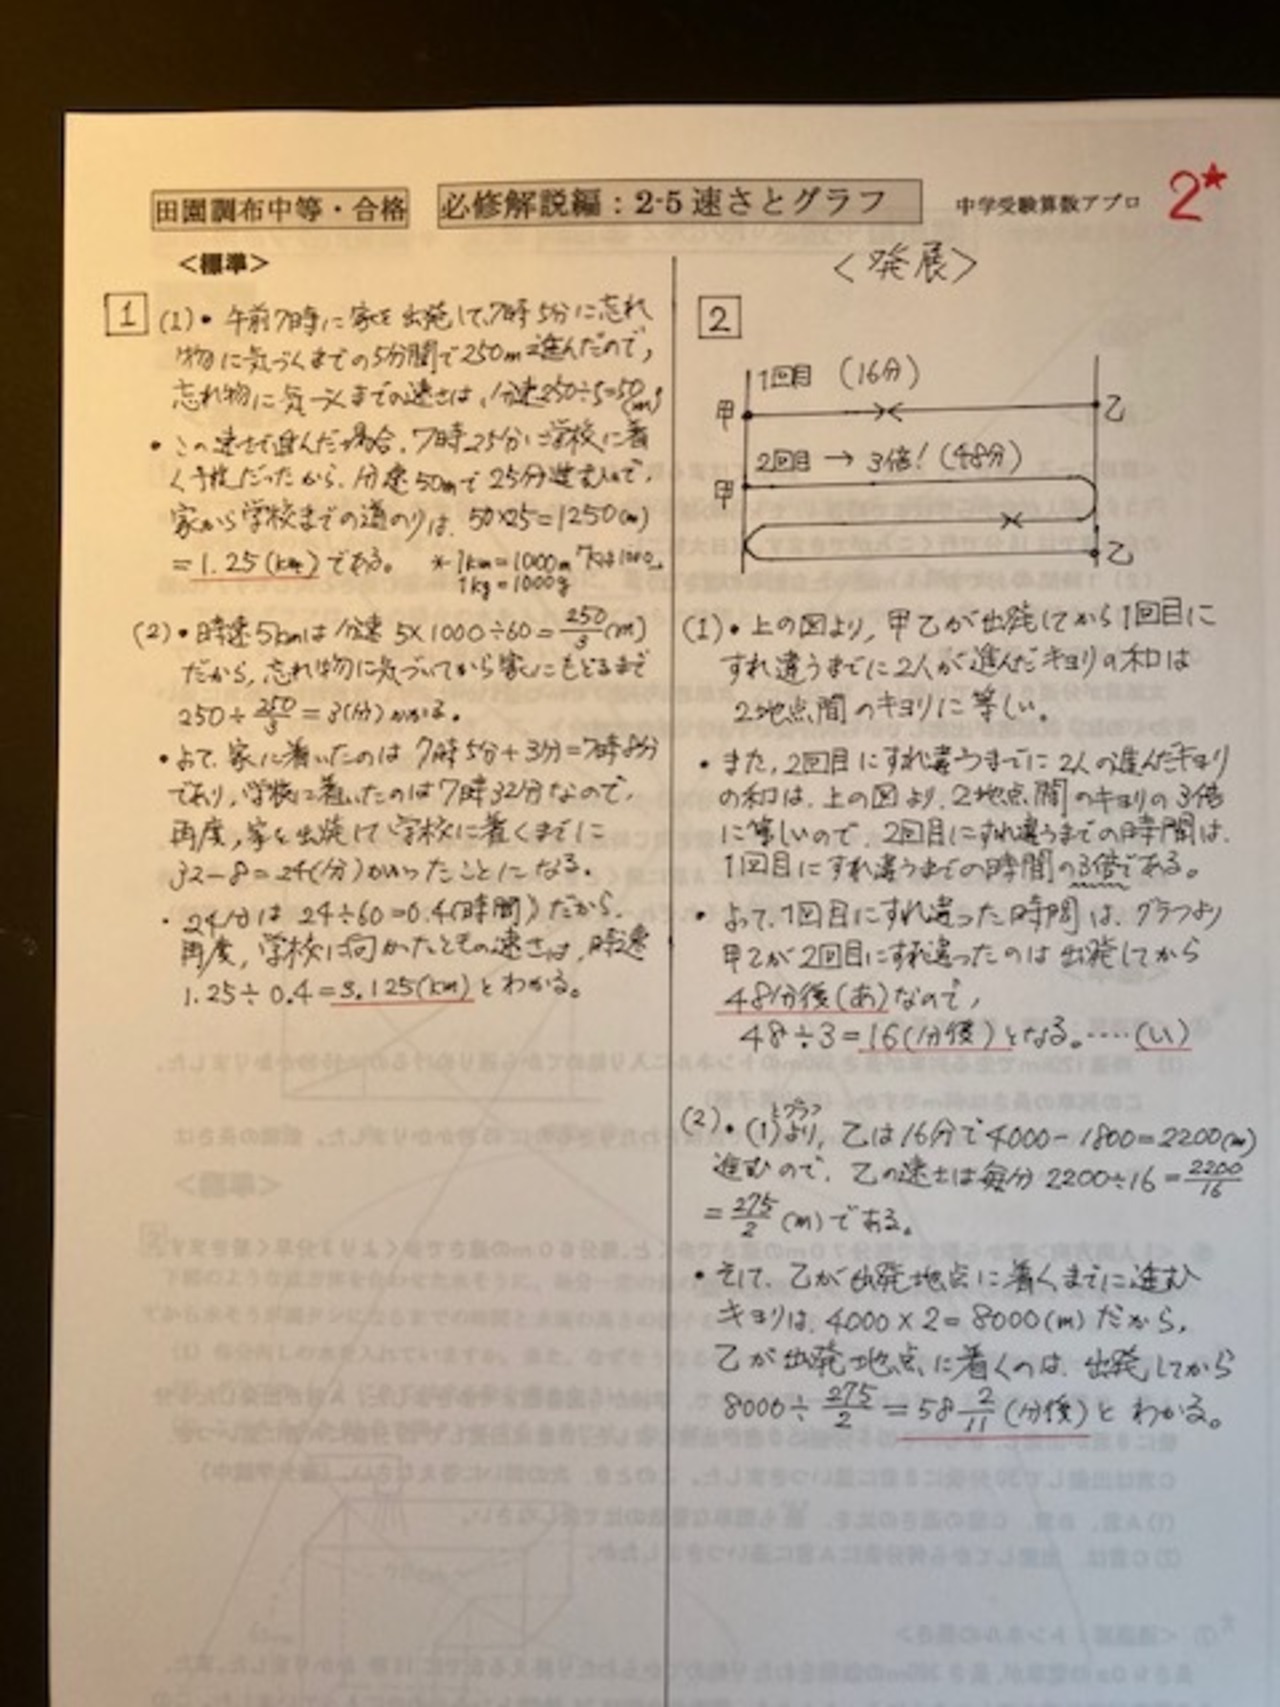 田園調布中等・合格
必修解説編：2-5 速さとグラフ
中学受験算数アプロ
2*
＜標準＞
1
(1)・午前7時に家を出発して、7時5分に忘れ
物に気づくまでの5分間で250m進んだので，
忘れ物に気づくまでの速さは，分速250÷5=50(m)
・この速さで進んだ場合，7時25分に学校に着
く予定だったから，分速50mで25分進むので，
家から学校までの道のりは，50×25=1250(m)
=1.25(km)である。 *1km=1000m
1kg=1000g
(2)・時速5kmは分速 5×1000÷60=250/3(m)
だから，忘れ物に気づいてから家にもどるまで
250÷250/3=3(分)かかる。
・よって，家に着いたのは 7時5分+3分=7時8分
であり，学校に着いたのは7時32分なので，
再度，家を出発して学校に着くまでに
32-8=24(分)かかったことになる。
・24分は 24÷60=0.4(時間)だから，
再度，学校に向かったときの速さは，時速
1.25÷0.4=3.125(km)とわかる。
＜発展＞
2
1回目 (16分)
甲 乙
2回目 → 3倍！(48分)
甲
乙
(1)・上の図より，甲乙が出発してから1回目に
すれ違うまでに2人が進んだキョリの和は
2地点間のキョリに等しい。
・また，2回目にすれ違うまでに2人の進んだキョリ
の和は，上の図より，2地点間のキョリの3倍
に等しいので，2回目にすれ違うまでの時間は，
1回目にすれ違うまでの時間の3倍である。
・よって，1回目にすれ違った時間は，グラフより
甲乙が2回目にすれ違ったのは出発してから
48分後(あ)なので，
48÷3=16(分後)となる。‥‥(い)
(2)・(1)とグラフより，乙は16分で4000-1800=2200(m)
進むので，乙の速さは毎分 2200÷16=2200/16
=275/2(m)である。
・そして，乙が出発地点に着くまでに進む
キョリは，4000×2=8000(m)だから，
乙が出発地点に着くのは，出発してから
8000÷275/2=58 2/11(分後)とわかる。